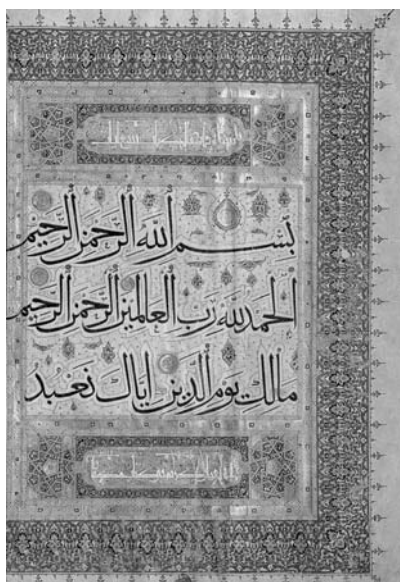 بِسْمِ اللهِ الرَّحْمٰنِ الرَّحِيْمِ
الْحَمْدُ لِلهِ رَبِّ الْعَالَمِيْنَ الرَّحْمٰنِ الرَّحِيْمِ
مَالِكِ يَوْمِ الدِّيْنِ إِيَّاكَ نَعْبُدُ